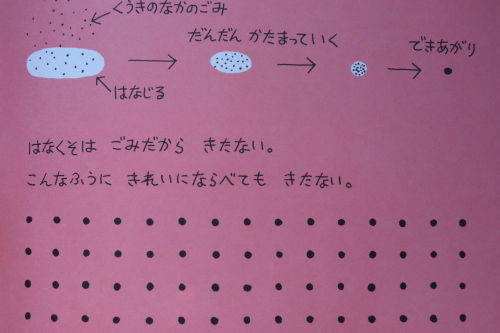 くうきのなかのごみ
だんだん かたまっていく
できあがり
はなじる
はなくそは ごみだから きたない。
こんなふうに きれいにならべても きたない。